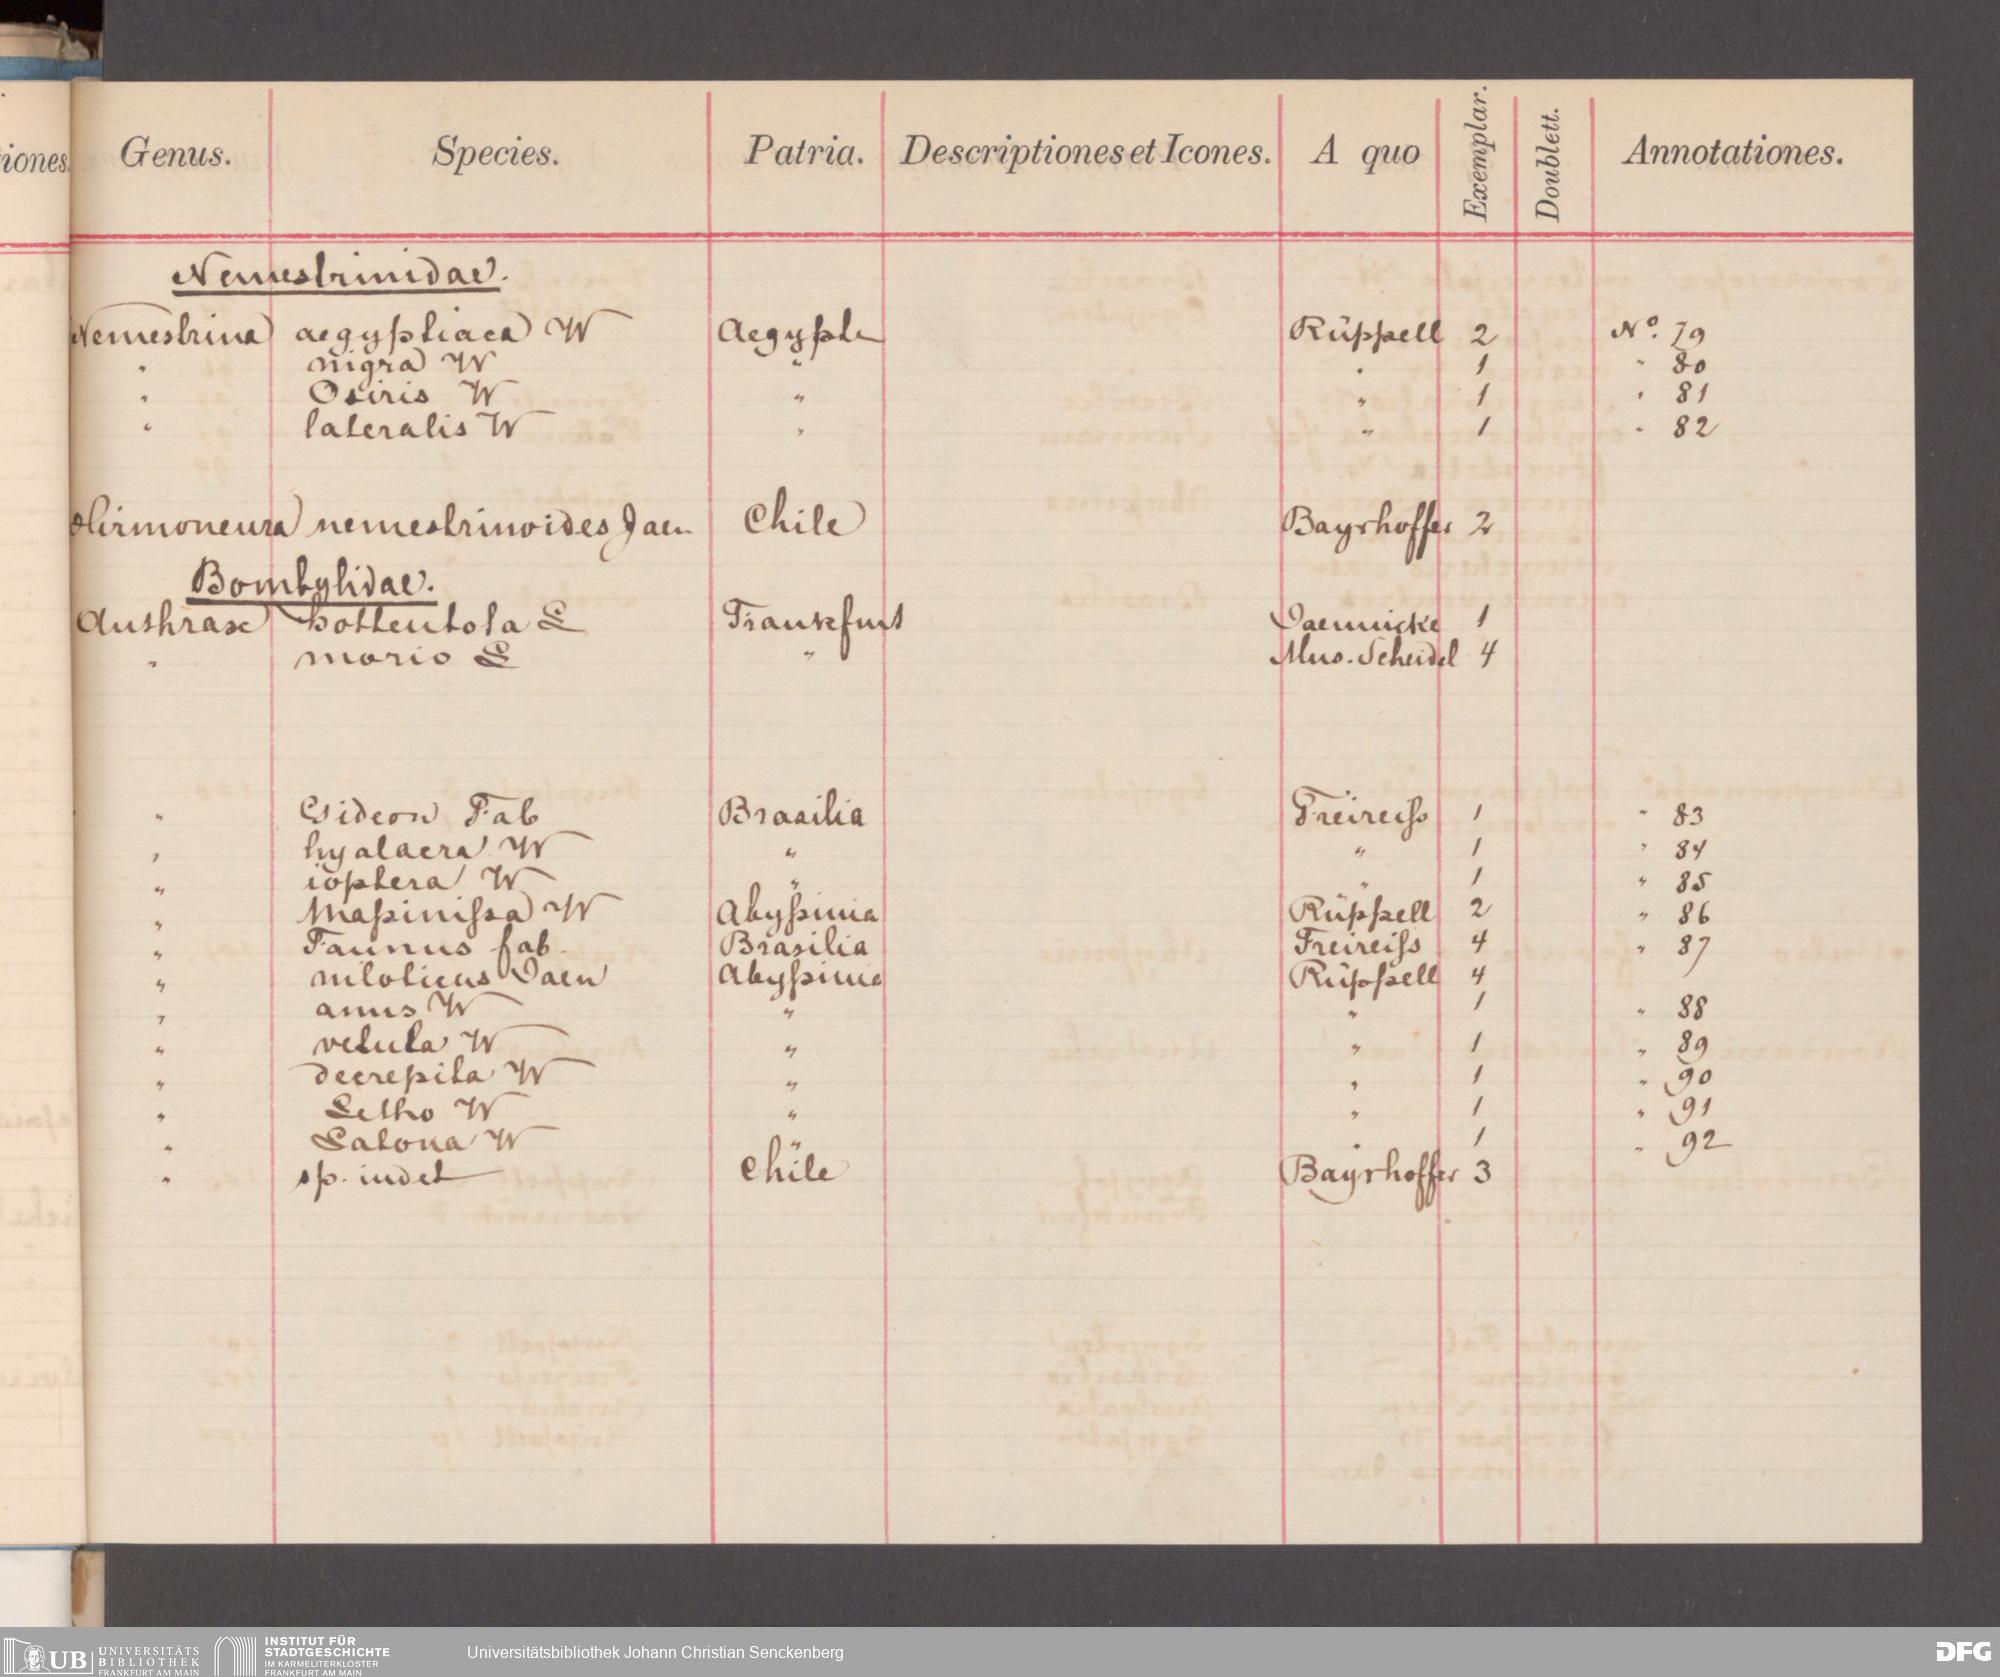 iones.
Genus. Species. Patria. Descriptiones et Icones. A quo Exemplar. Doublett. Annotationes.
Nemestrinidae.
Nemestrina aegyptiaca W Aegypte Rüppell 2 No. 79
" nigra W " " 1 " 80
" Osiris W " " 1 " 81
" lateralis W " " 1 " 82
Hirmoneura nemestrinoides Jaen Chile Bayrhoffer 2
Bombylidae.
Anthrax hottentota L Frankfurt Jaennicke 1
" morio L " Mus. Scheidel 4
" Gideon Fab Brasilia Freireiss 1 " 83
" hyalacra W " " 1 " 84
" ioptera W " " 1 " 85
" Massinissa W Abyssinia Rüppell 2 " 86
" Faunus fab. Brasilia Freireiss 4 " 87
" niloticus Jaen Abyssinia Rüppell 4
" anus W " " 1 " 88
" vetula W " " 1 " 89
" decrepita W " " 1 " 90
" Letho W " " 1 " 91
" Latona W " " 1 " 92
" sp. indet Chile Bayrhoffer 3
UB UNIVERSITÄTS BIBLIOTHEK FRANKFURT AM MAIN
INSTITUT FÜR STADTGESCHICHTE IM KARMELITERKLOSTER FRANKFURT AM MAIN
Universitätsbibliothek Johann Christian Senckenberg
DFG